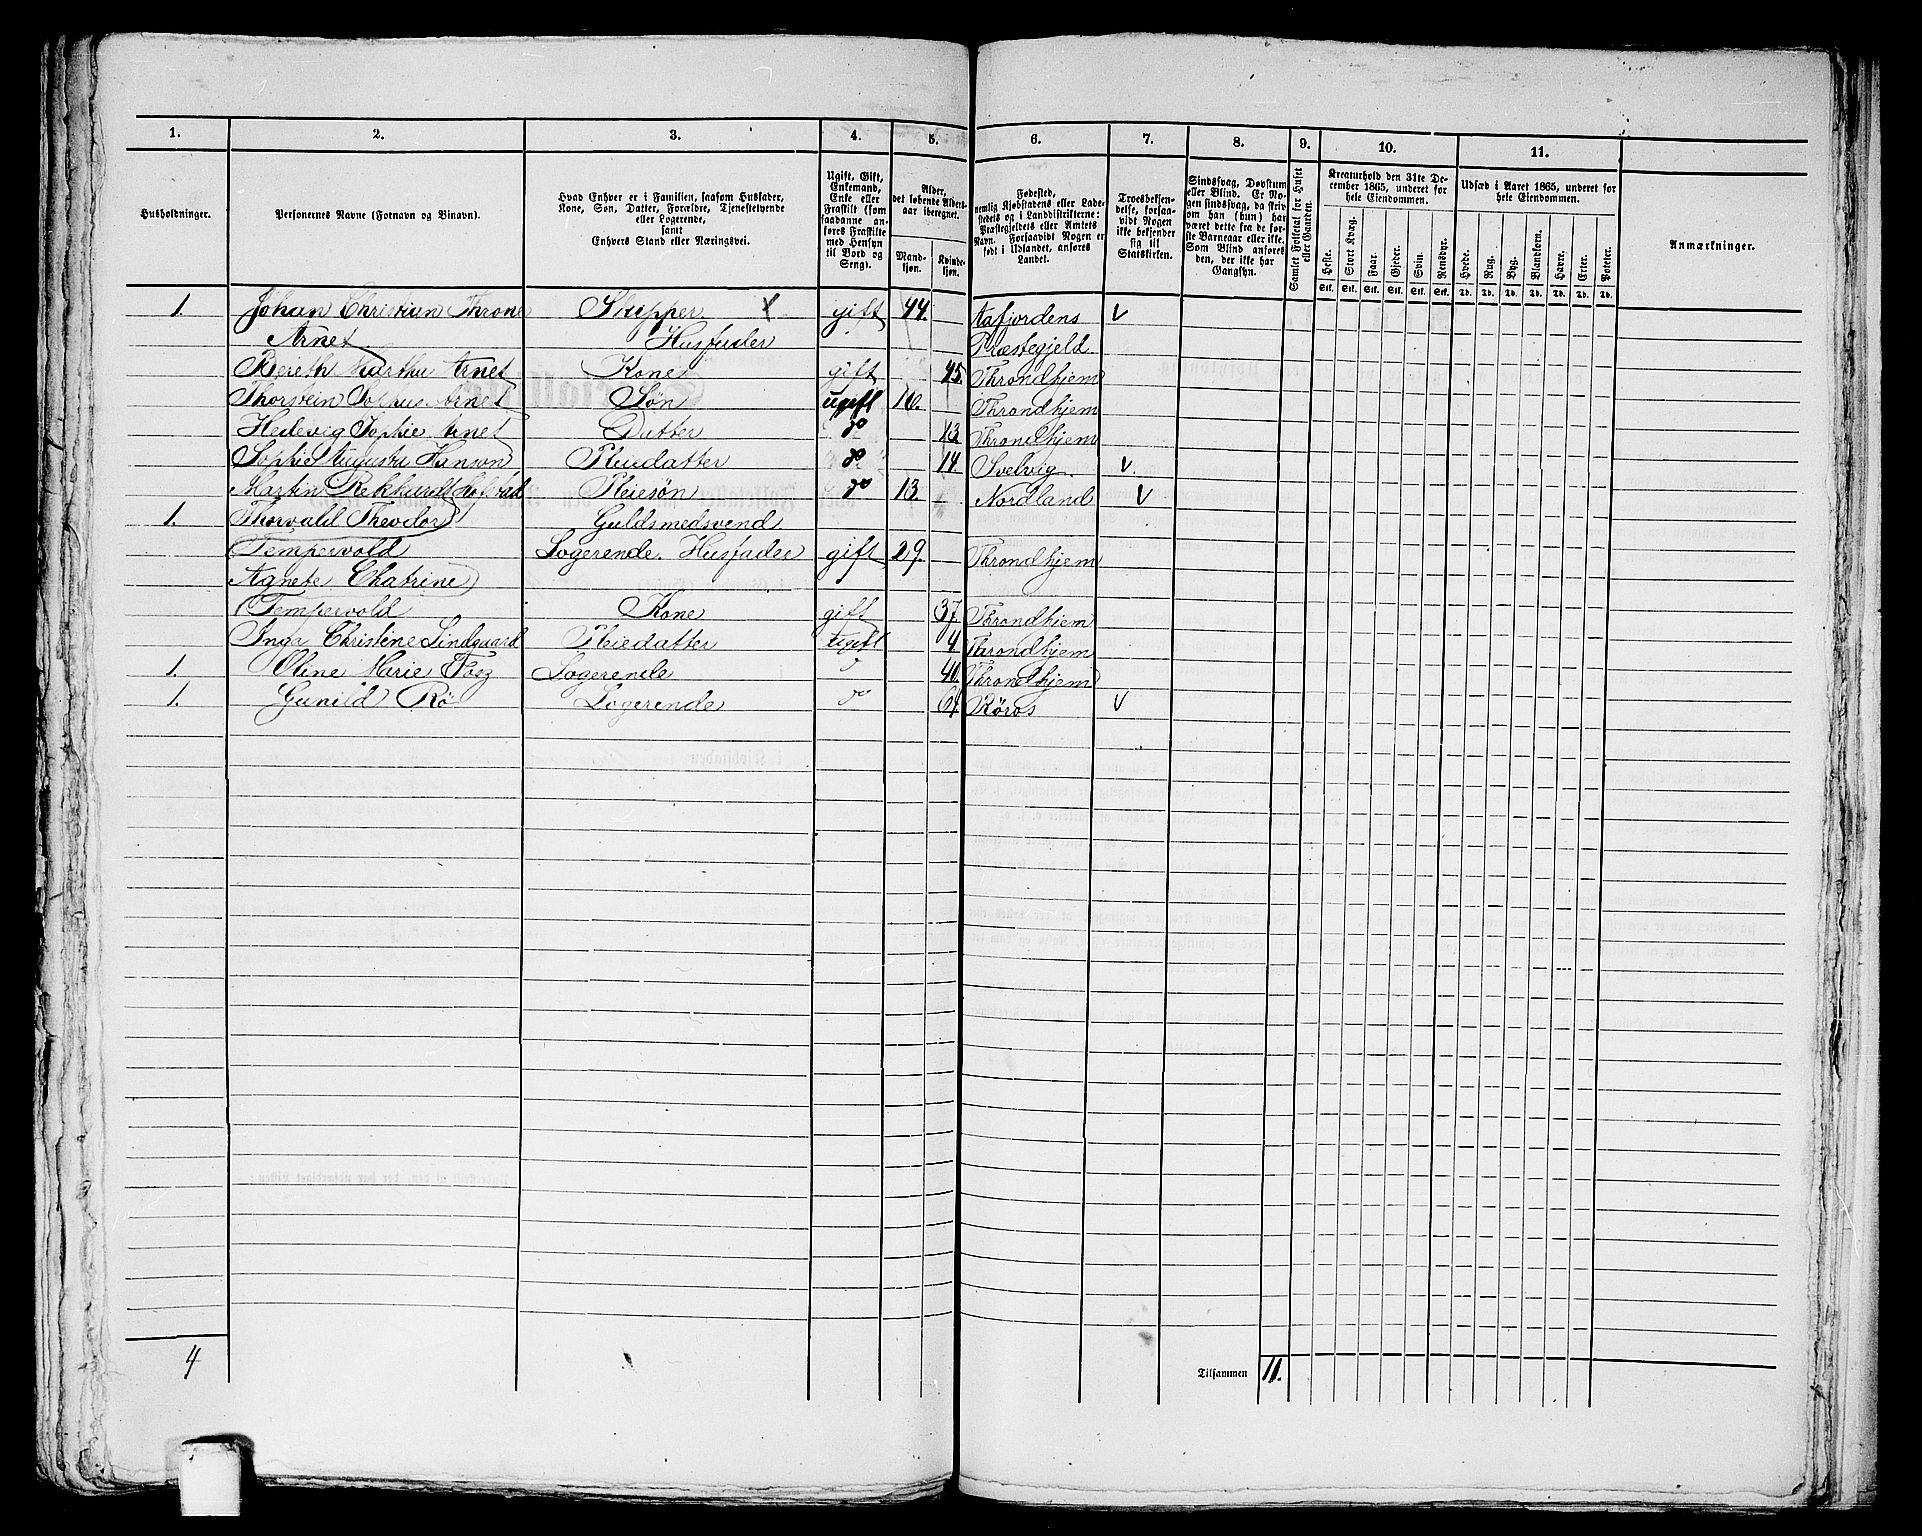 1. 2. 3. 4. 5. 6. 7. 8. 9. 10. 11.
Husholdninger.
Personernes Navne (Fornavn og Binavn).
Hvad Enhver er i Familien, saasom Husfader,
Kone, Søn, Datter, Forældre, Tjenestetyende
eller Logerende,
samt
Enhvers Stand eller Næringsvei.
Ugift, Gift,
Enkemand,
Enke eller
Fraskilt (som
saadanne an-
føres Fraskilte
med Hensyn
til Bord og
Seng).
Alder,
det løbende Alders-
aar iberegnet.
Mand-
kjøn.
Kvinde-
kjøn.
Fødested,
nemlig Kjøbstadens eller Lade-
stedets og i Landdistrikterne:
Præstegjeldets eller Amtets
Navn. Forsaavidt Nogen er
født i Udlandet, anføres
Landet.
Troesbekjen-
delse, forsaa-
vidt Nogen
ikke bekjender
sig til
Statskirken.
Sindssvag, Døvstum
eller Blind. Er No-
gen sindssvag, da skriv
om han (hun) har
været dette fra de før-
ste Barneaar eller ikke.
Som Blind anføres
den, der ikke har
Gangsyn.
Samlet Folketal for Huset
eller Gaarden.
Kreaturhold den 31te De-
cember 1865, underet for
hele Eiendommen.
Heste. Stort Kvæg. Faar. Gjeder. Svin. Rensdyr.
Stk. Stk. Stk. Stk. Stk. Stk.
Udsæd i Aaret 1865, underet for
hele Eiendommen.
Hvede. Rug. Byg. Blandkorn. Havre. Erter. Poteter.
Td. Td. Td. Td. Td. Td. Td.
Anmærkninger.
1. Johan Christian Throne Skipper X gift 44. Aafjordens V
Arnet Husfader Præstegjeld
Bereth Martha Arnet Kone gift 45. Throndhjem
Thorstein Sophus Arnet Søn ugift 16. Throndhjem
Hedevig Sophie Arnet Datter do 13 Throndhjem
Sophie Augusta Hanson Pleiedatter do 14. Svelvig V.
Martin Pleiesøn do 13. Nordland V
1. Thorvald Theodor Guldsmedsvend
Tempervold Logerende. Husfader gift 29. Throndhjem
Agnete Chatrine
Tempervold Kone gift 37. Throndhjem
Inga Christene Lindgaard Pleiedatter Ugift 4. Throndhjem
1. Oline Marie Logerende do 40. Throndhjem
1. Gunild Rö Logerende do Röros V
4 Tilsammen 11.